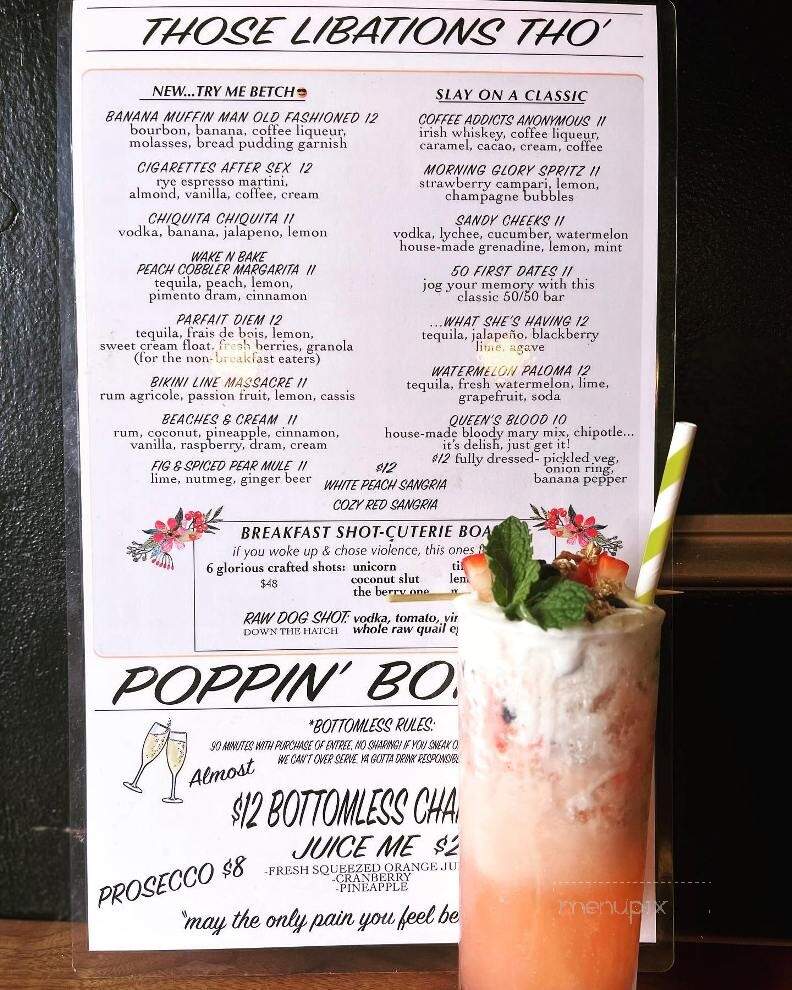 THOSE LIBATIONS THO'
NEW...TRY ME BETCH
BANANA MUFFIN MAN OLD FASHIONED 12
bourbon, banana, coffee liqueur,
molasses, bread pudding garnish
CIGARETTES AFTER SEX 12
rye espresso martini,
almond, vanilla, coffee, cream
CHIQUITA CHIQUITA 11
vodka, banana, jalapeno, lemon
WAKE N BAKE
PEACH COBBLER MARGARITA 11
tequila, peach, lemon,
pimento dram, cinnamon
PARFAIT DIEM 12
tequila, frais de bois, lemon,
sweet cream float, fresh berries, granola
(for the non-breakfast eaters)
BIKINI LINE MASSACRE 11
rum agricole, passion fruit, lemon, cassis
BEACHES & CREAM 11
rum, coconut, pineapple, cinnamon,
vanilla, raspberry, dram, cream
FIG & SPICED PEAR MULE 11
lime, nutmeg, ginger beer
SLAY ON A CLASSIC
COFFEE ADDICTS ANONYMOUS 11
irish whiskey, coffee liqueur,
caramel, cacao, cream, coffee
MORNING GLORY SPRITZ 11
strawberry campari, lemon,
champagne bubbles
SANDY CHEEKS 11
vodka, lychee, cucumber, watermelon
house-made grenadine, lemon, mint
50 FIRST DATES 11
jog your memory with this
classic 50/50 bar
...WHAT SHE'S HAVING 12
tequila, jalapeño, blackberry
lime, agave
WATERMELON PALOMA 12
tequila, fresh watermelon, lime,
grapefruit, soda
QUEEN'S BLOOD 10
house-made bloody mary mix, chipotle...
it's delish, just get it!
$12 fully dressed- pickled veg,
onion ring,
banana pepper
$12
WHITE PEACH SANGRIA
COZY RED SANGRIA
BREAKFAST SHOT-CUTERIE BOA
if you woke up & chose violence, this ones f
6 glorious crafted shots: unicorn
$48 coconut slut
the berry one
RAW DOG SHOT: vodka, tomato,
DOWN THE HATCH whole raw quail
POPPIN' BO
*BOTTOMLESS RULES:
90 MINUTES WITH PURCHASE OF ENTREE, NO SHARING! IF YOU SNEAK
WE CAN'T OVER SERVE, YA GOTTA DRINK RESPONSIB
Almost
$12 BOTTOMLESS CHA
JUICE ME $2
-FRESH SQUEEZED ORANGE JU
-CRANBERRY
-PINEAPPLE
PROSECCO $8
"may the only pain you feel be
menupix